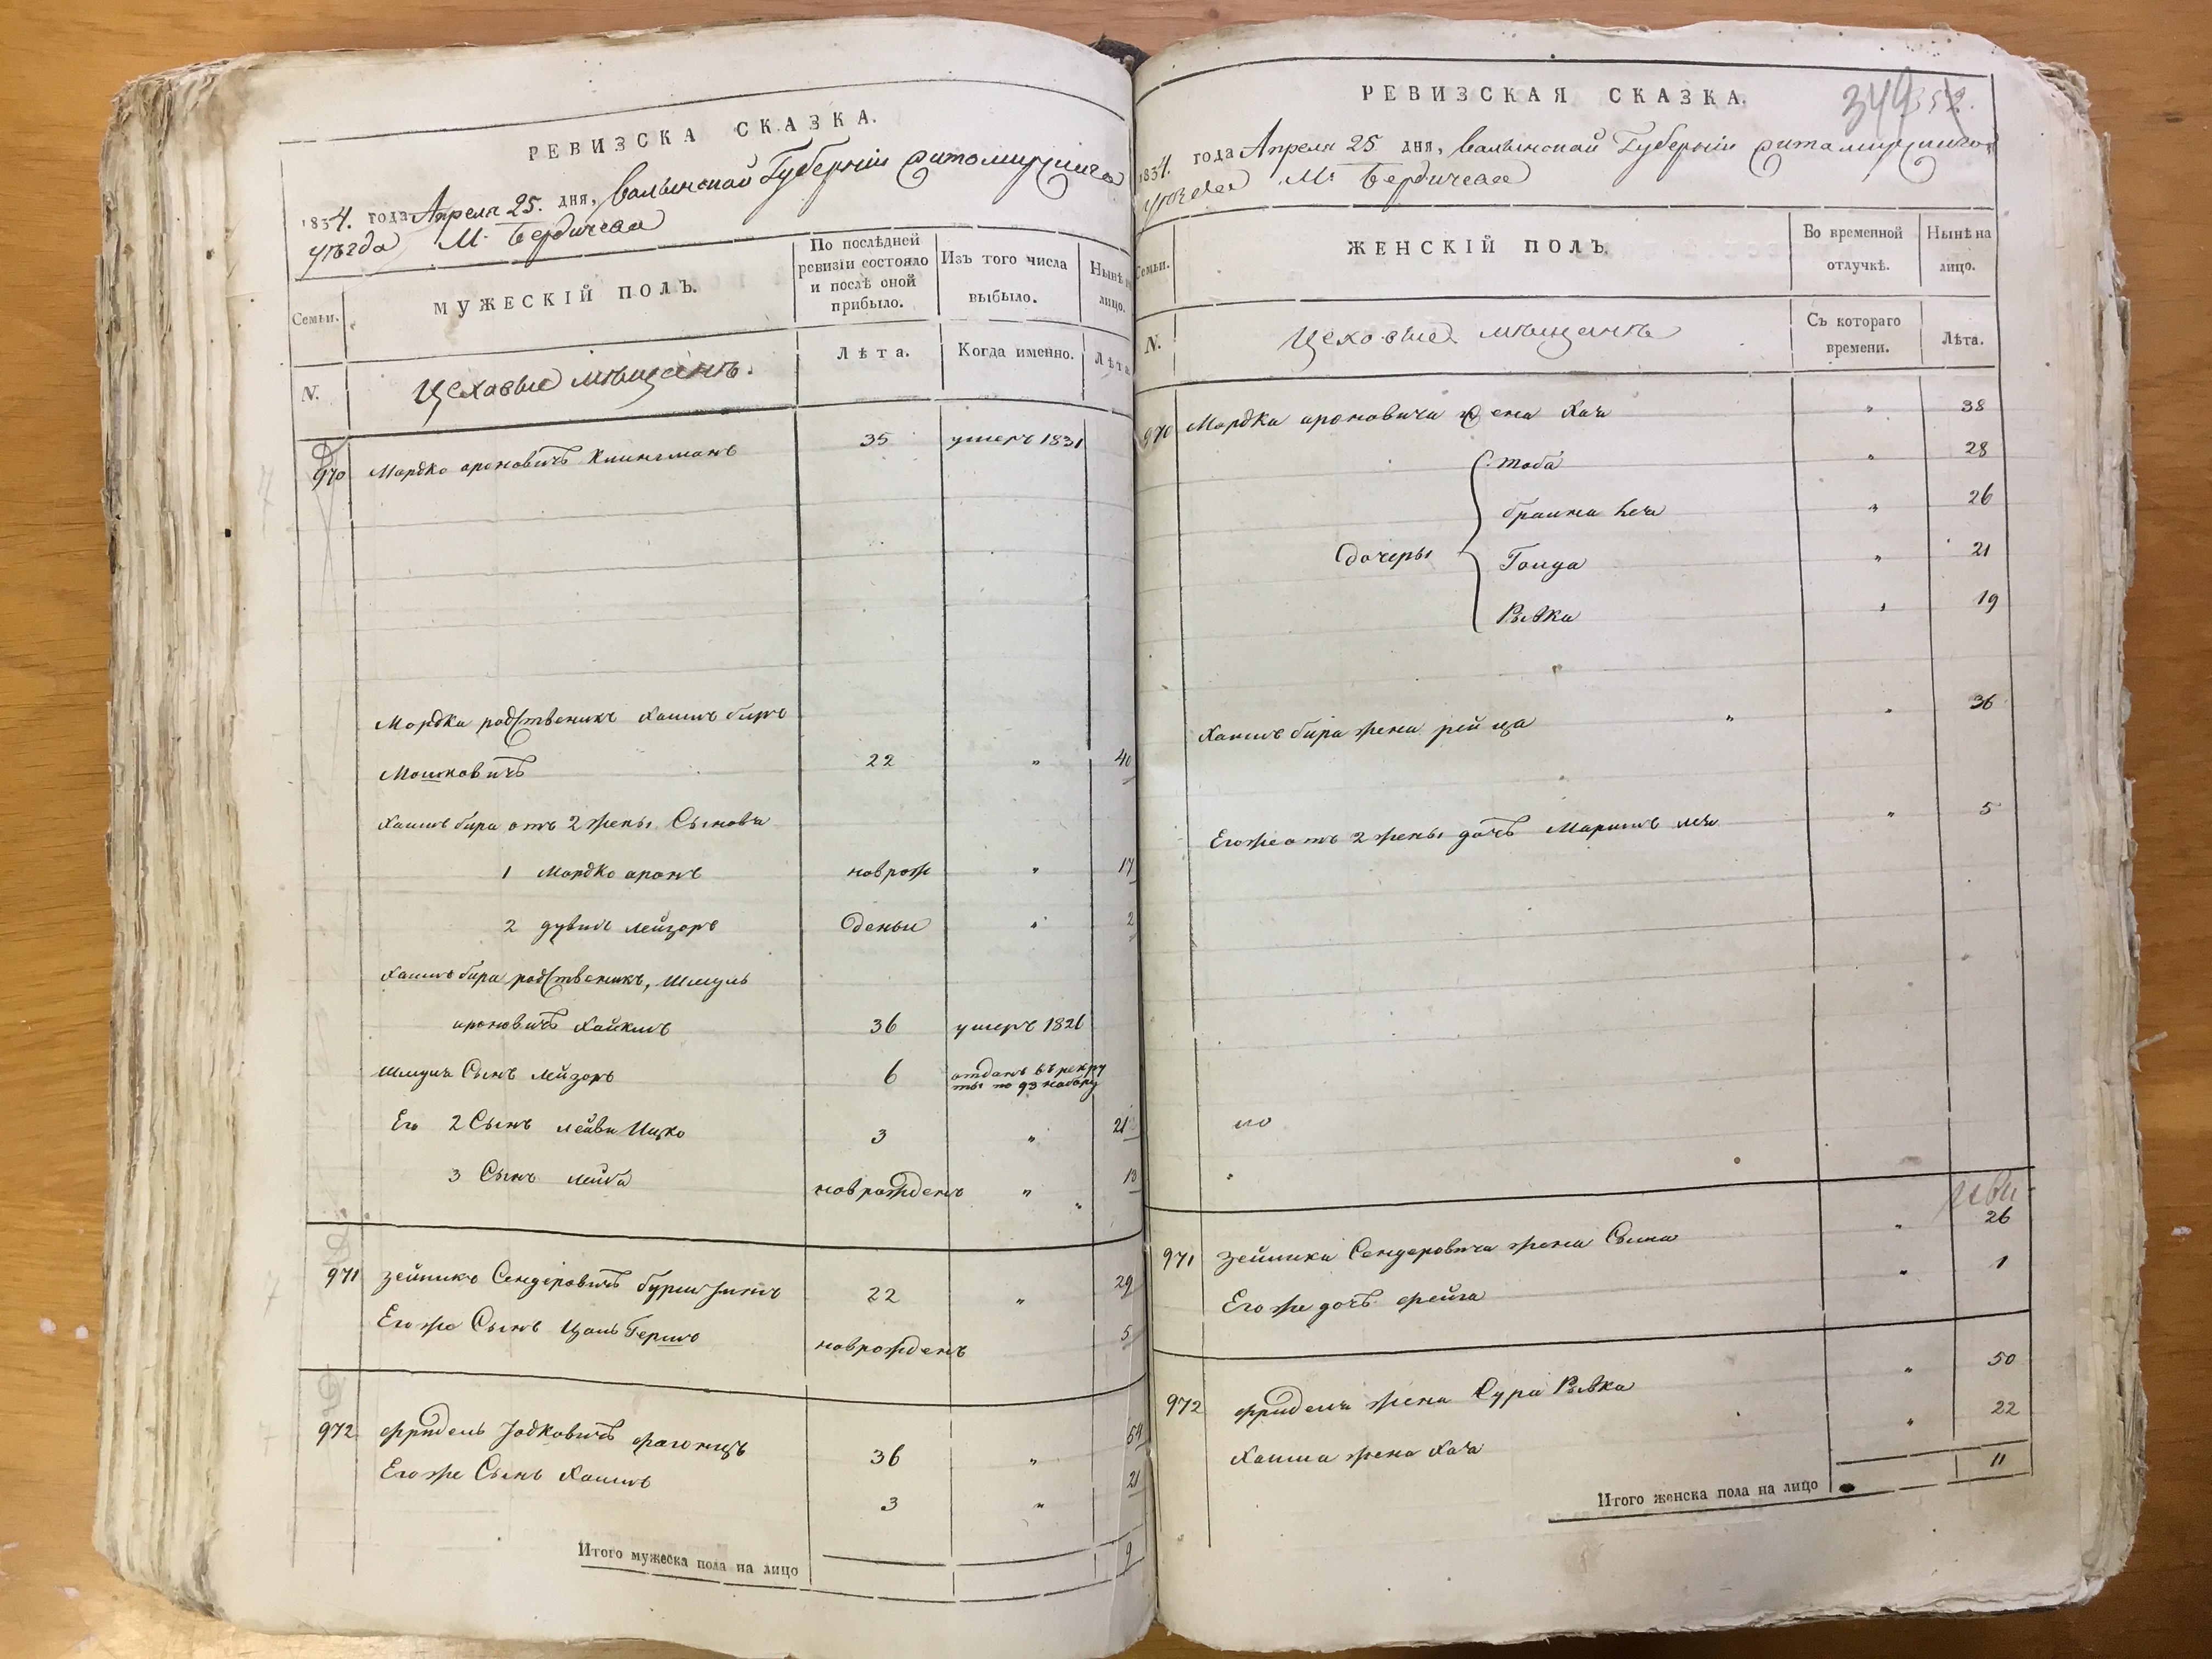 РЕВИЗСКА СКАЗКА.
1834. года Апреля 25. дня, Волынской Губернии Житомирскаго
уѣзда М. Бердичева
Семьи.
МУЖЕСКІЙ ПОЛЪ.
По послѣдней ревизіи состояло и послѣ оной прибыло.
Изъ того числа выбыло.
Нынѣ на лицо.
N.
Цеховые мѣщанъ.
Лѣта.
Когда именно.
Лѣта
970 Мордко ароновичъ 35 умеръ 1831
Мордка родственикъ Хаимъ биръ
Мошковичъ 22 " 40
Хаимъ бира отъ 2 жены Сыновя
1 Мордко аронъ новрож " 17
2 дувидъ лейзоръ деньи " 2
Хаимъ бира родственикъ, Шмуль
ароновичъ Хайкимъ 36 умеръ 1826
Шмуля Сынъ лейзоръ 6 отданъ въ рекру
ты по 93 набору
Его 2 Сынъ лейви Ицко 3 " 21
3 Сынъ лейба новрожденъ " 13
971 Зейликъ Сендеровичъ 22 " 29
Его же Сынъ Цаль Гершъ новрожденъ 5
972 фридель Іодковичъ 36 " 54
Его же Сынъ Хаимъ 3 " 21
Итого мужеска пола на лицо 9
РЕВИЗСКАЯ СКАЗКА.
344 352.
1834. года Апреля 25 дня, Волынской Губерніи Житомирскаго
уѣзда М. Бердичева
Семьи.
ЖЕНСКІЙ ПОЛЪ.
Во временной отлучкѣ.
Нынѣ на лицо.
N.
Цеховые мѣщанъ
Съ котораго времени.
Лѣта.
970 Мордка ароновича жена Хая " 38
Тоба " 28
браина " 26
дочеры Голда " 21
Рывка " 19
Хаимъ бира жена рейца " " 36
Его же отъ 2 жены дочъ " 5
971 Зейлика Сендеровича жена Сима " 26
Его же дочъ фейга " 1
972 фриделя жена Сура Рывка " 50
Хаима жена Хая " 22
Итого женска пола на лицо 11